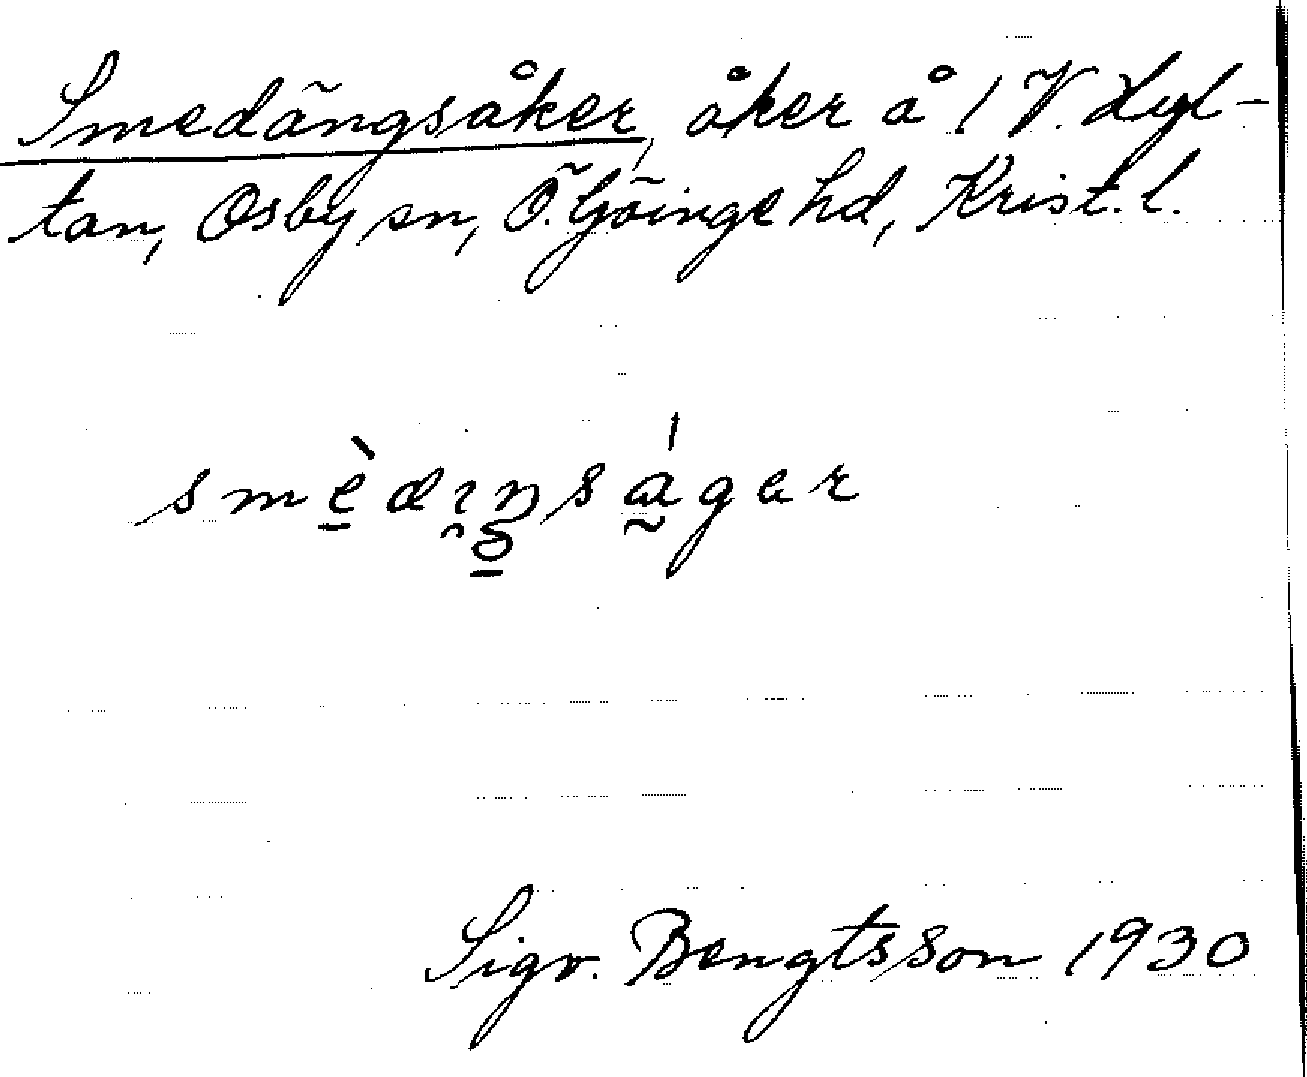 Smedängsåker, åker å 1 V. Lyl-
tan, Osby sn, Ö. Göinge hd, Krist. l.
smèdıŋságar
Sigv. Bengtsson 1930